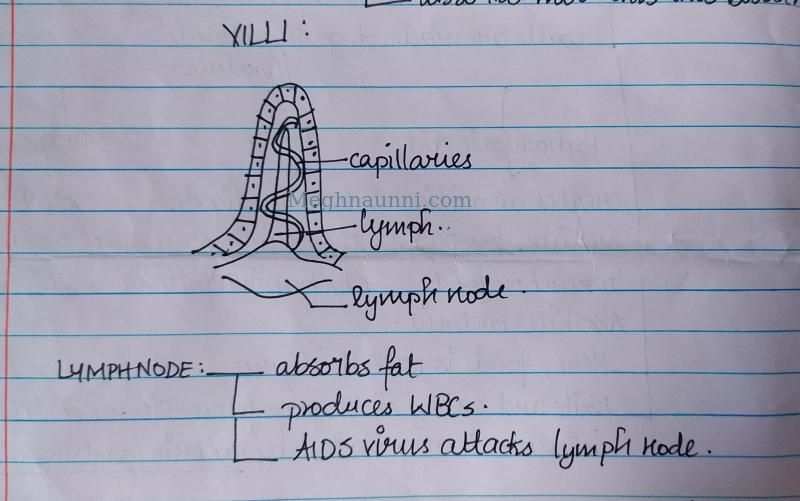 VILLI :
capillaries
Meghnaunni.com
lymph..
lymph node.
LYMPHNODE: absorbs fat
produces WBCs.
AIDS virus attacks lymph node.